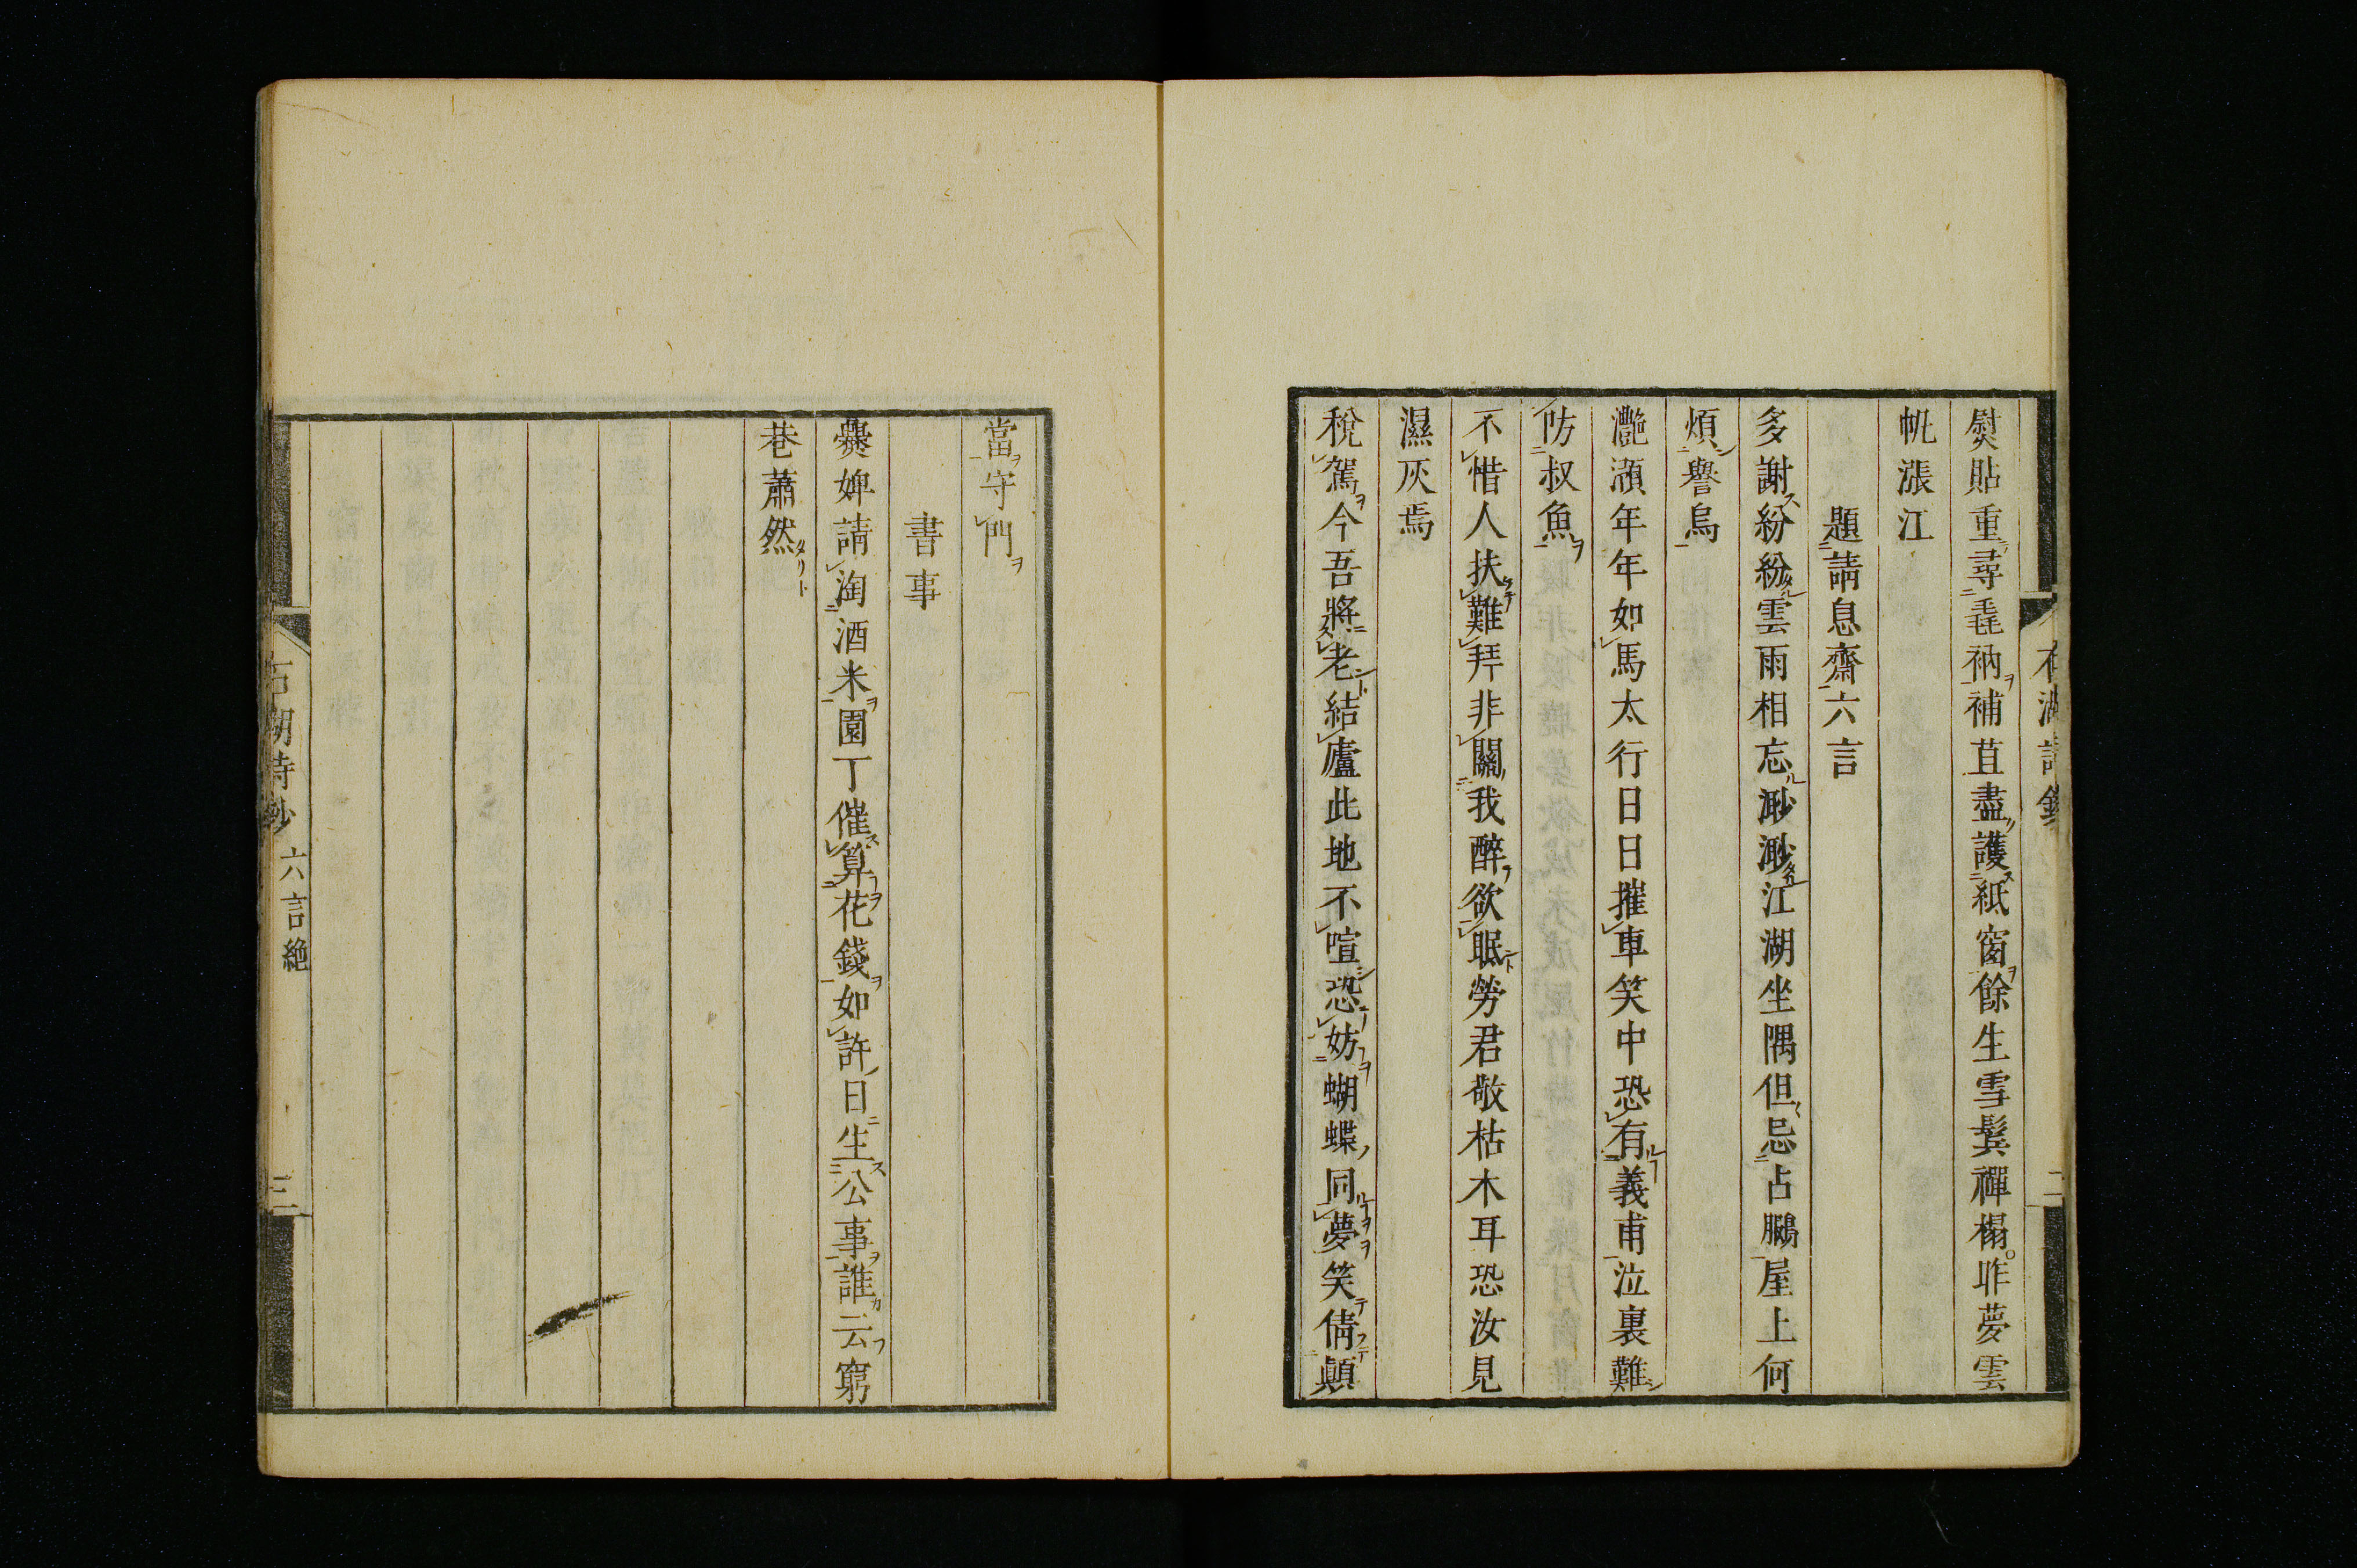 熨貼重尋毳衲補苴盡護紙窗餘生雪鬢禪榻昨夢雲
帆漲江
題請息齋六言
多謝紛紛雲雨相忘渺渺江湖坐隅但忌占鵩屋上何
煩譽烏
灧澦年年如馬太行日日摧車笑中恐有義甫泣裏難
防叔魚
不惜人扶難拜非關我醉欲眠勞君敬枯木耳恐汝見
濕灰焉
稅駕今吾將老結廬此地不喧恐妨蝴蝶同夢笑倩顛
當守門
書事
爨婢請淘酒米園丁催算花錢如許日生公事誰云窮
巷蕭然
石湖詩鈔 六言絶
三